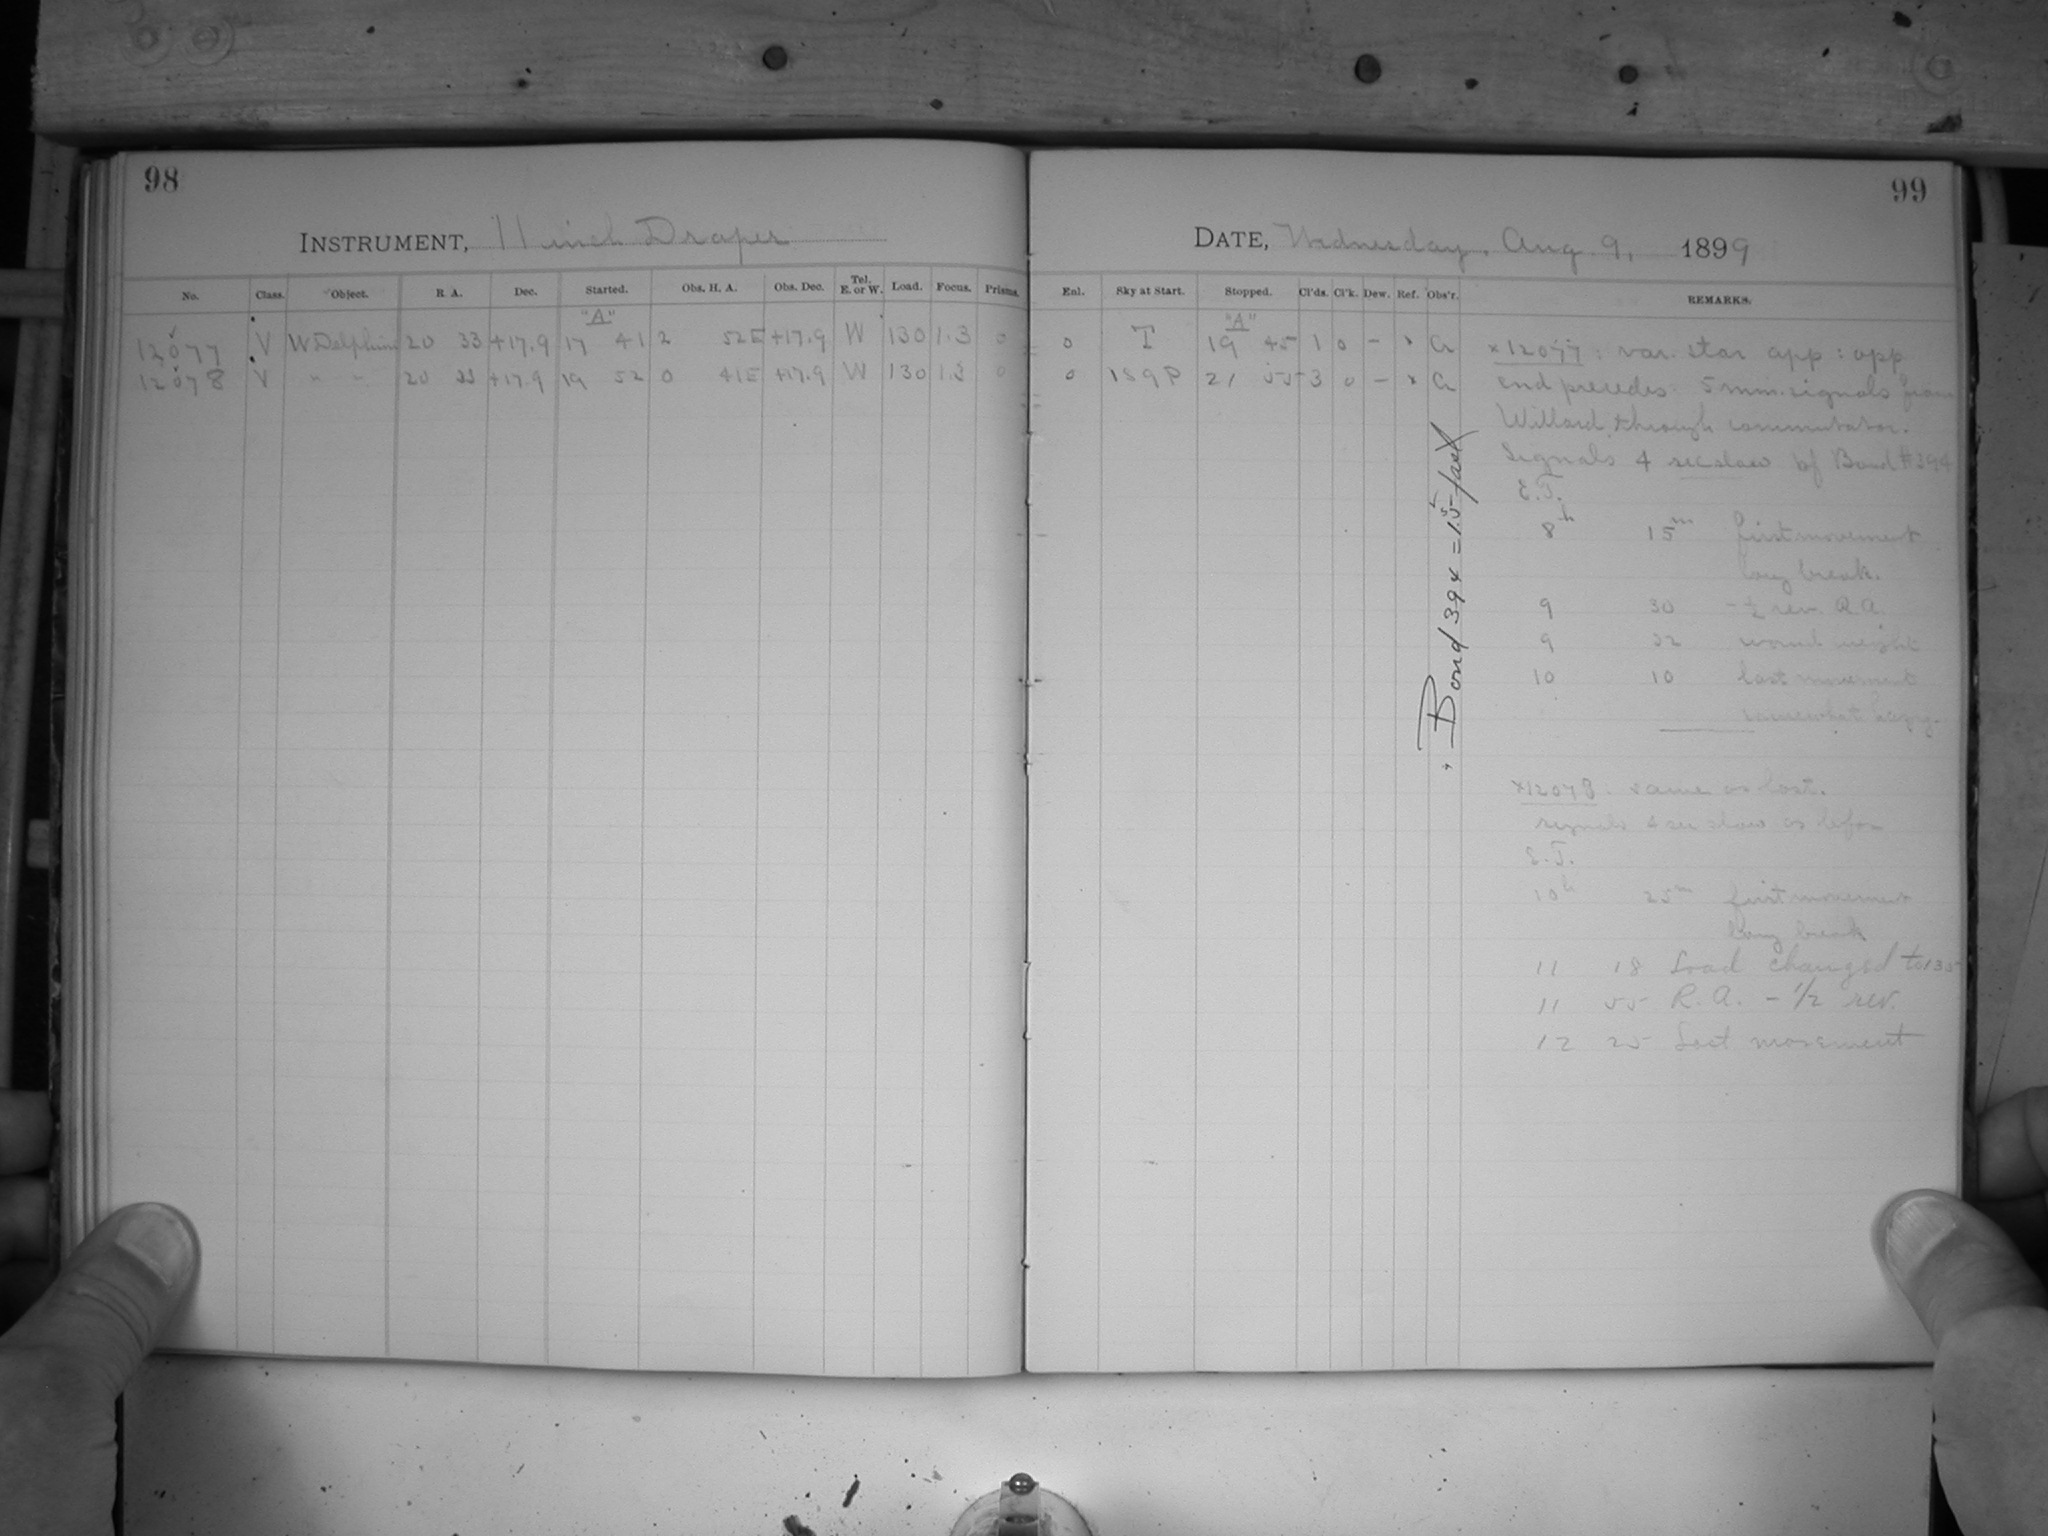 98
INSTRUMENT, 11 inch Draper
No. Class. Object. R. A. Dec. Started. Obs. H. A. Obs. Dec. Tel. E. or W. Load. Focus. Prisms.
"A"
12077 V W Delphini 20 33 +17.9 17 41 2 52E +17.9 W 130 1.3 0
12078 V " " 20 33 +17.9 19 52 0 41E +17.9 W 130 1.3 0
99
DATE, Wednesday, Aug. 9, 1899
Enl. Sky at Start. Stopped. Cl'ds. Cl'k. Dew. Ref. Obs'r. REMARKS.
"A"
0 T 19 45 1 0 - x
0 189P 21 55 3 0 - x
Bond 394 = 1.5 fast
x12077: var. star app: opp
end precedes. 5 mm. signals from
Willard through commutator.
Signals 4 sec slow of Bond #394
E.T.
8h 15m first movement
long break.
9 30 -½ rev. R.A.
9 32 wound weight
10 10 last movement
somewhat
x12078. same as last.
signals 4 sec slow as before
E.T.
10h 25m first movement
long break
11 18 Load changed to 135
11 55 R.A. - 1/2 rev.
12 25 Last movement